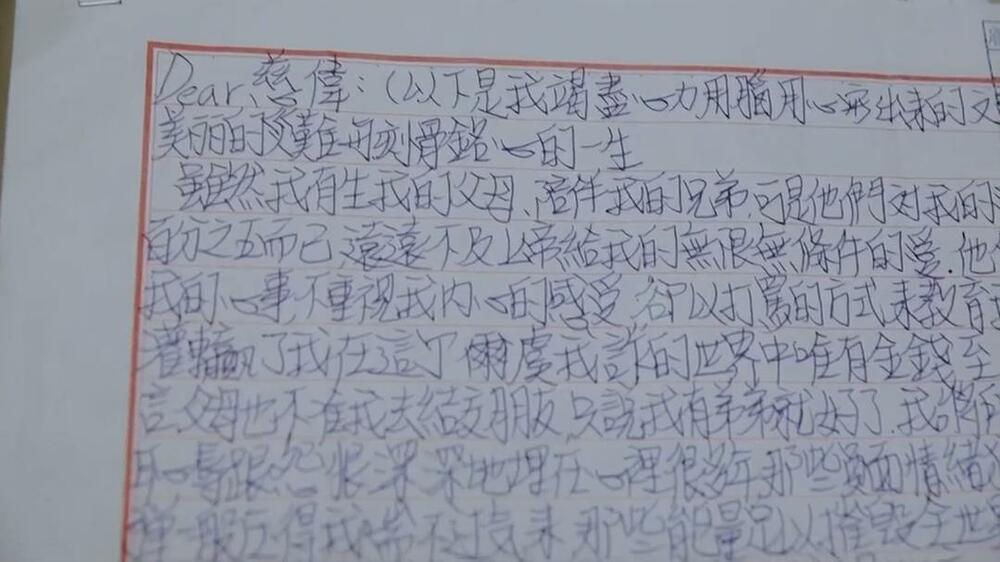 Dear 慈偉：（以下是我竭盡心力用腦用心寫出來的文
美麗的災難與刻骨銘心的一生
雖然我有生我的父母、陪伴我的兄弟，可是他們對我的
百分之五而已遠遠不及上帝給我的無限無條件的愛．他
我的心事不重視我內心的感受 卻以打罵的方式來教育
灌輸了我在這了爾虞我詐的世界中唯有金錢至
言．父母也不准我去結交朋友 只說我有弟弟就好了．我
跟怨恨深深地埋在心裡很多年 那些負面情緒
彈一般压得我喘不过気來 那些能量足以摧毀全世